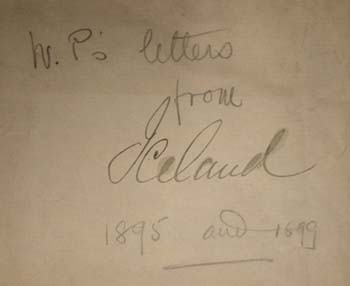 W. P's letters
from
Iceland
1895 and 1899